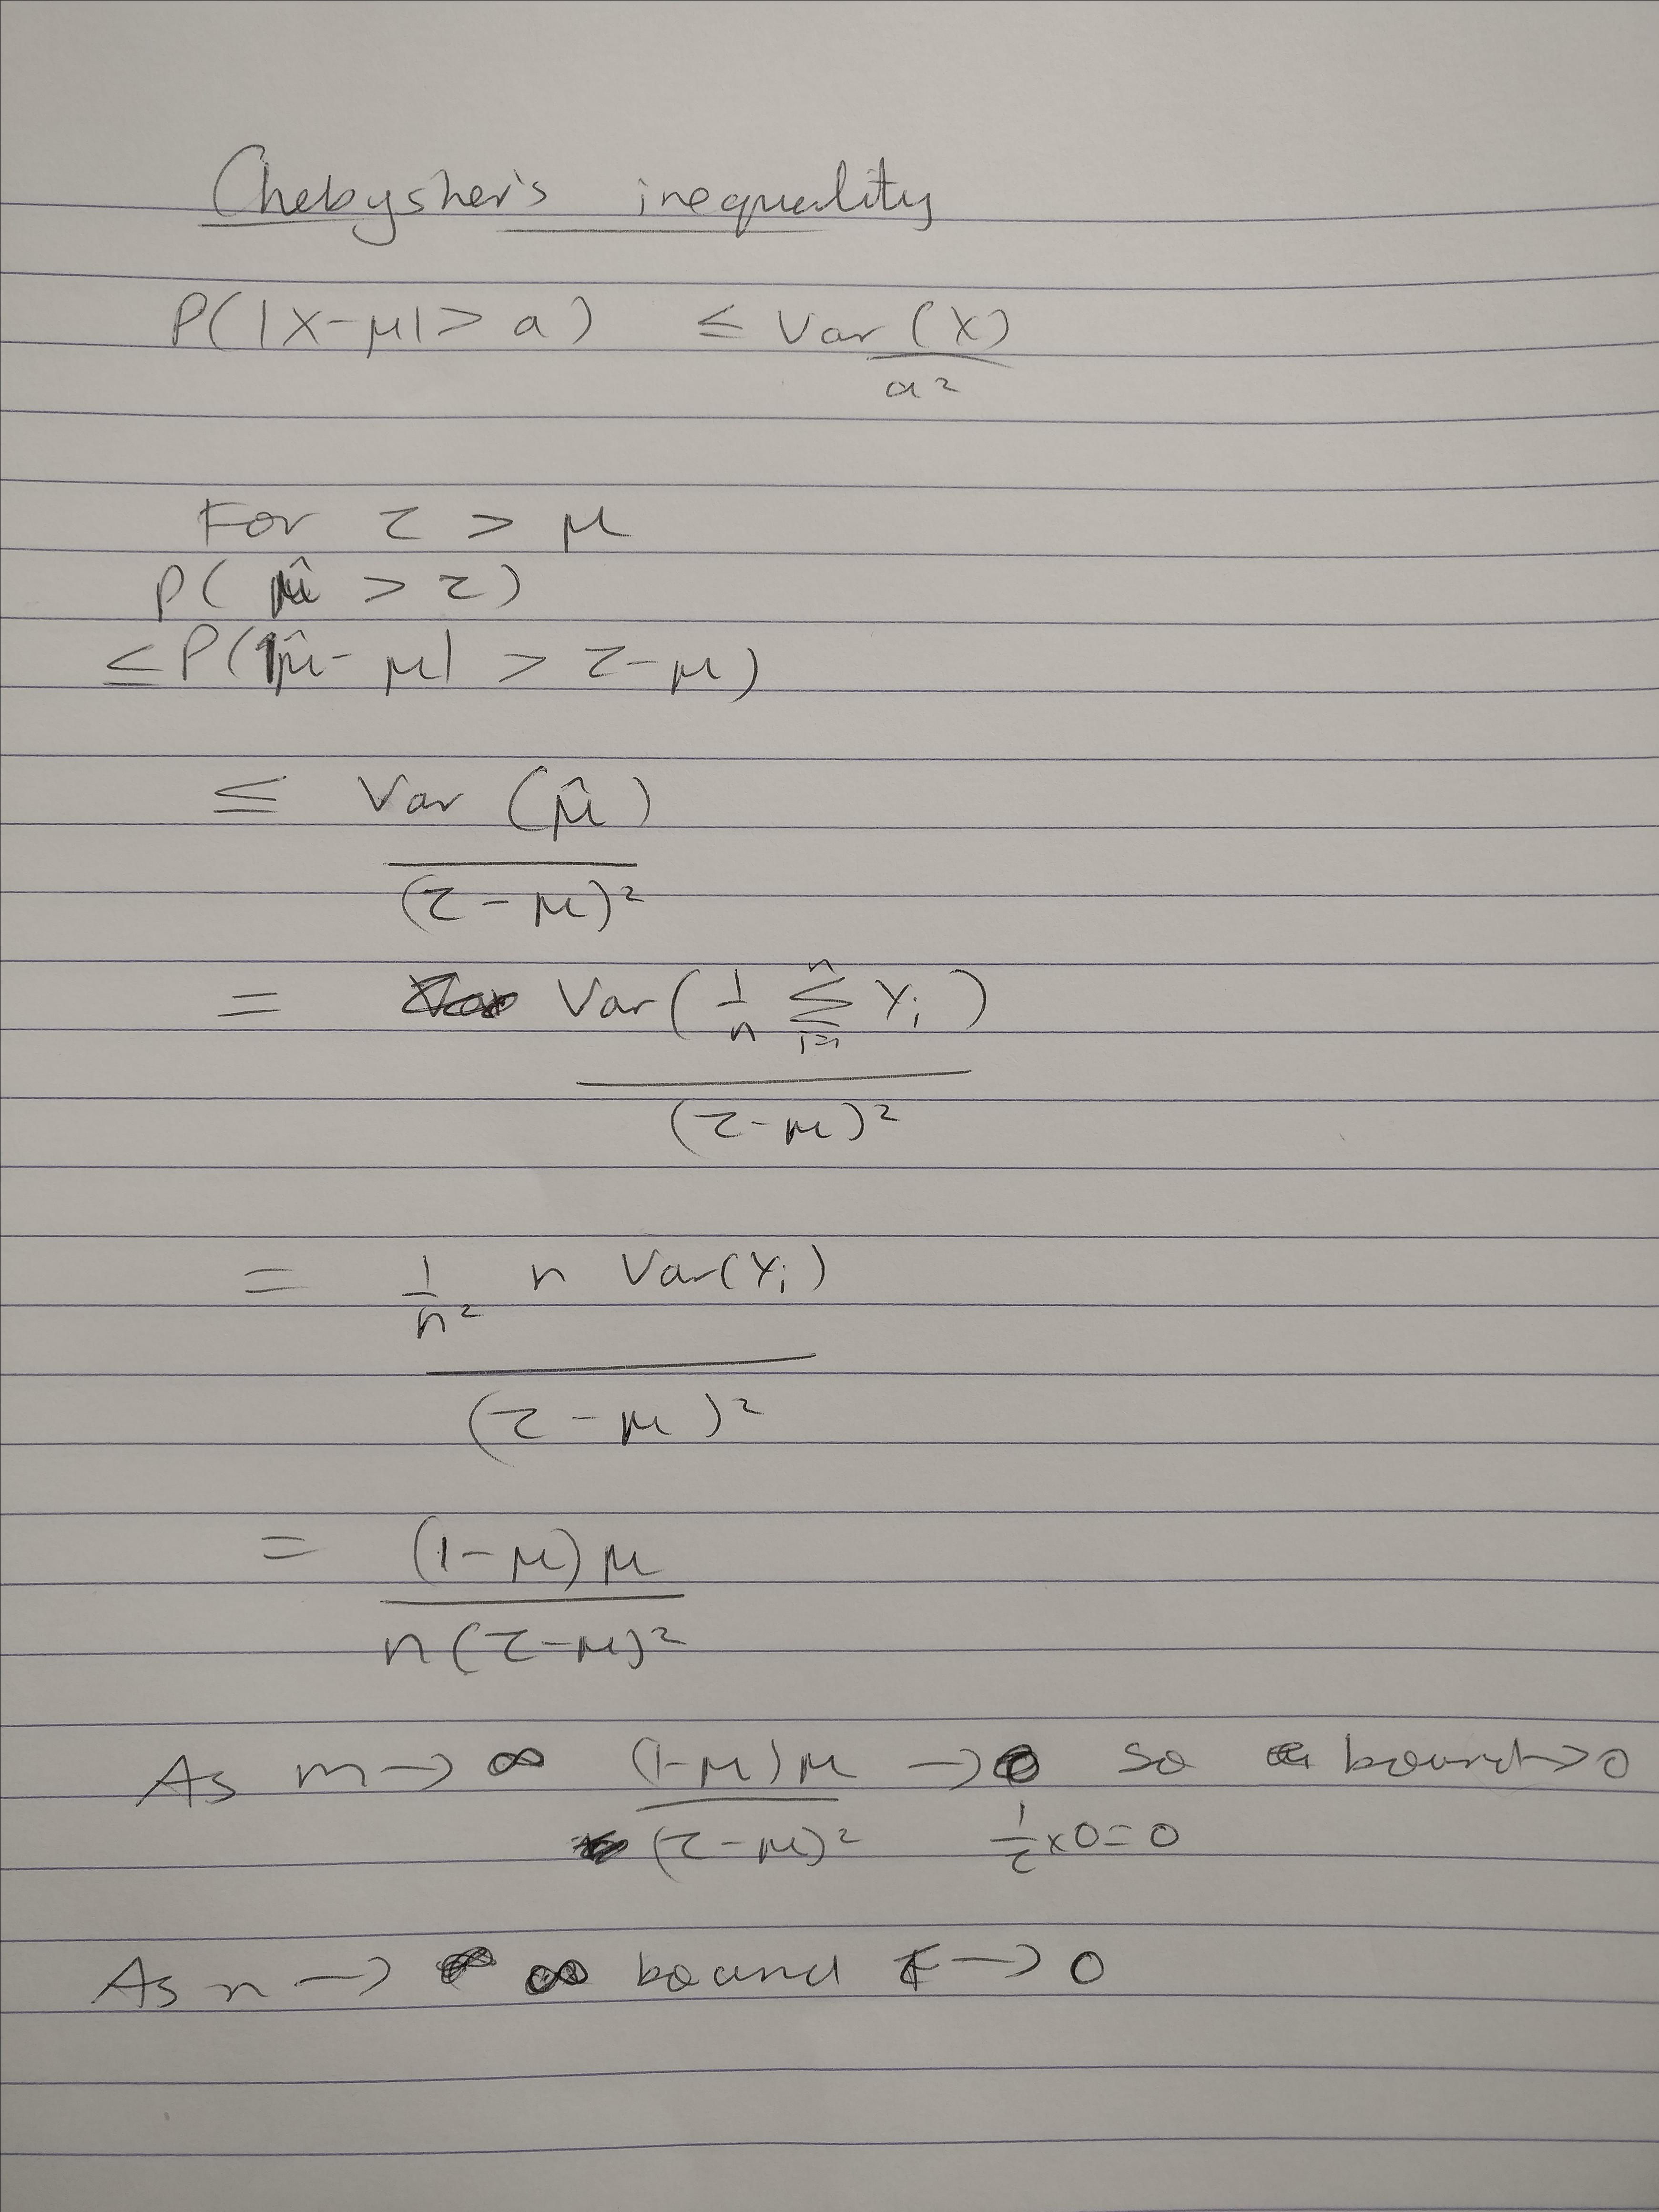 Chebyshev's inequality
P(|X-μ|> a) ≤ Var (X)
a²
For τ > μ
P( μ̂ > τ)
≤P(|μ̂- μ| > τ-μ)
≤ Var (μ̂)
(τ-μ)²
= Var( 1/n Σ Yi )
n
i=1
(τ-μ)²
= 1/n² n Var(Yi)
(τ-μ)²
= (1-μ)μ
n(τ-μ)²
As m→∞ (1-μ)μ →0 so bound→0
(τ-μ)² ×0=0
As n→ ∞ bound →0